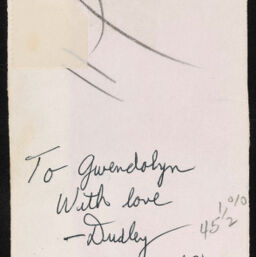 To Gwendolyn
With love
—Dudley
45 1/2 %